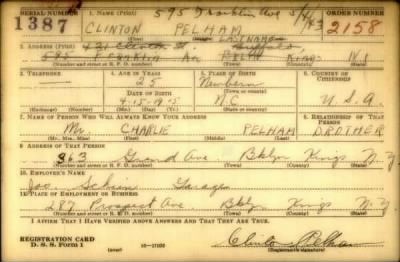 SERIAL NUMBER 1. NAME (Print) 595 Franklin Ave 5/4/43 ORDER NUMBER
1387 CLINTON PELHAM 2158
2. ADDRESS (Print)
421 Clinton St. Buffalo
595 FRANKLIN Av BKLYN KINGS N.Y
(Number and street or R. F. D. number) (Town) (County) (State)
3. TELEPHONE 4. AGE IN YEARS 5. PLACE OF BIRTH 6. COUNTRY OF CITIZENSHIP
25 Newbern
DATE OF BIRTH
4-15-1915 N.C. U.S.A.
(Exchange) (Number) (Mo.) (Day) (Yr.) (State or country)
7. NAME OF PERSON WHO WILL ALWAYS KNOW YOUR ADDRESS 8. RELATIONSHIP OF THAT PERSON
Mr CHARLIE PELHAM BROTHER
(Mr., Mrs., Miss) (First) (Middle) (Last)
9. ADDRESS OF THAT PERSON
363 Grand Ave Bklyn Kings N.Y
(Number and street or R. F. D. number) (Town) (County) (State)
10. EMPLOYER'S NAME
Jos. Garage
11. PLACE OF EMPLOYMENT OR BUSINESS
287 Prospect Ave. Bklyn Kings N.Y
(Number and street or R. F. D. number) (Town) (County) (State)
I AFFIRM THAT I HAVE VERIFIED ABOVE ANSWERS AND THAT THEY ARE TRUE.
REGISTRATION CARD
D. S. S. FORM 1 Clinton Pelham
(Registrant's signature)